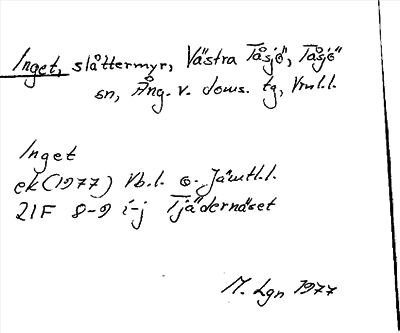 Inget, slåttermyr, Västra Tåsjö, Tåsjö
sn, Ång. v. doms. tg, Vnl.l.
Inget
ek (1977) Vb.l. o. Jämtl.l.
21F 8-9 i-j Tjädernäset
M. Lgn 1977